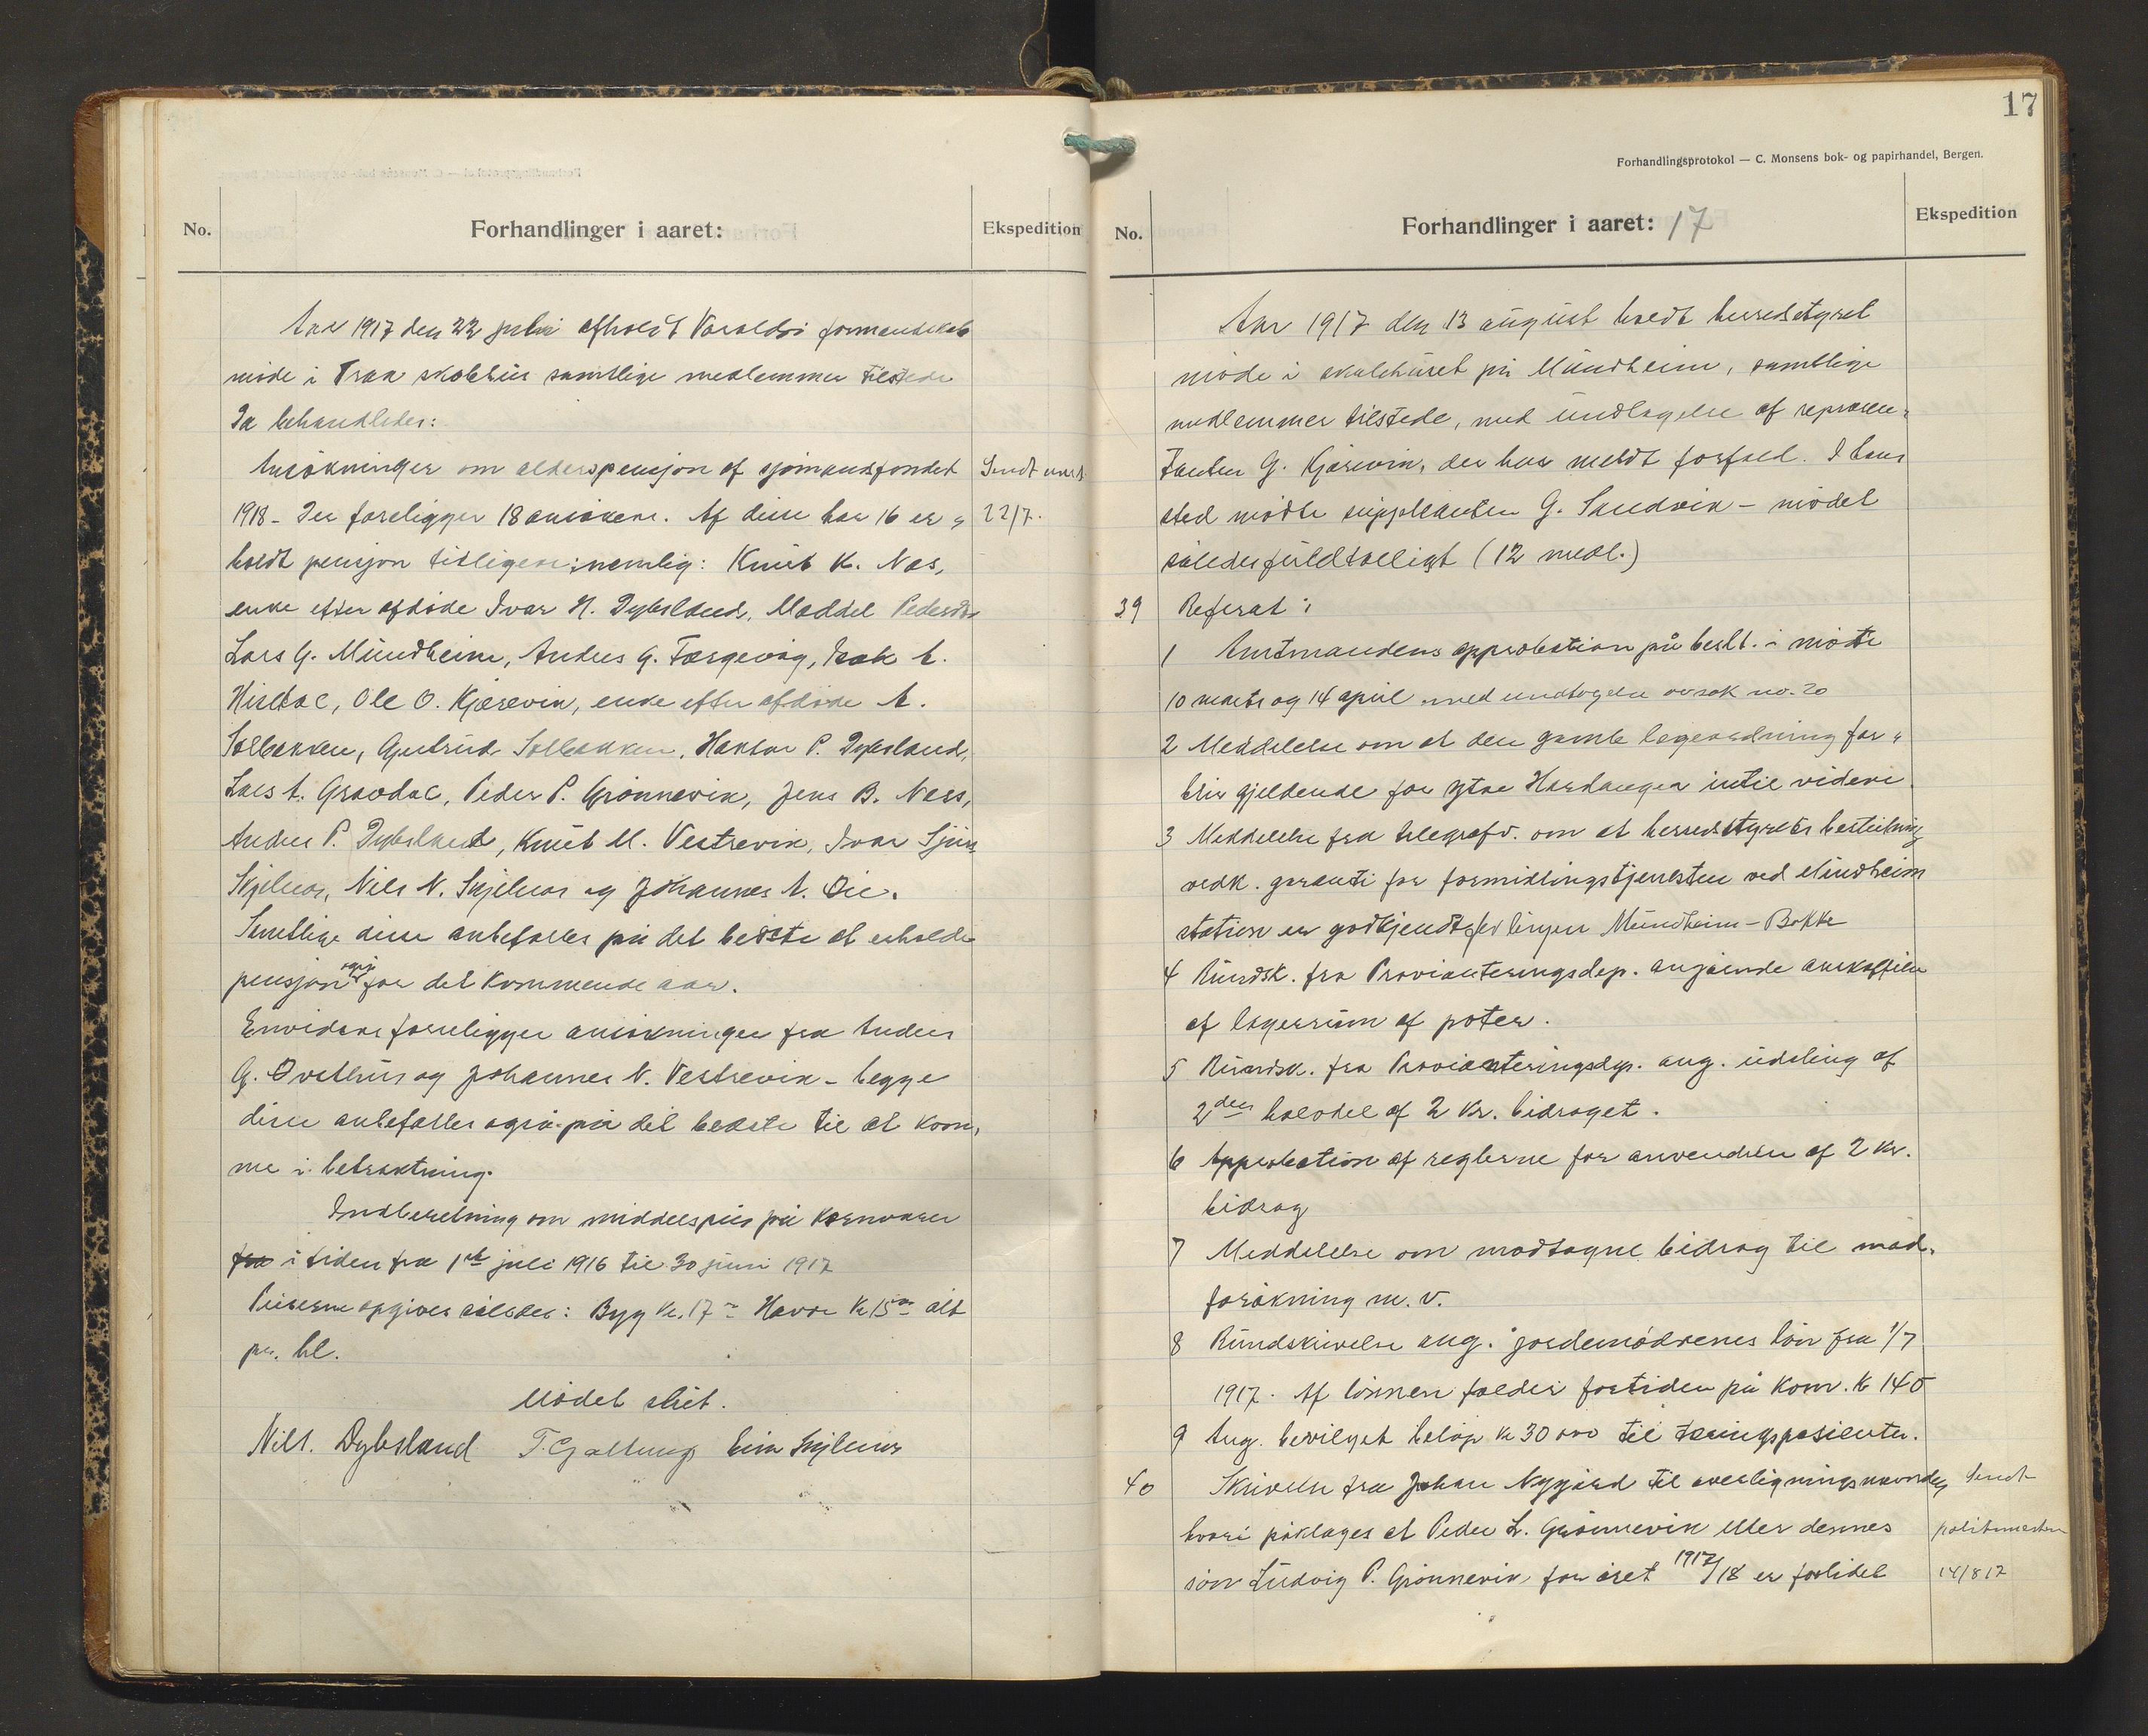 No.
Forhandlinger i aaret:
Ekspedition
Aar 1917 den 22 juli afholdt Varaldsø formandskab
møde i Traa skolehus samtlige medlemmer tilstede
Da behandledes:
Ansøkninger om alderspensjon af sjømandsfondet
Sendt
1918 - Der foreligger 18 ansøkere. Af disse har 16 er„
22/7.
holdt pensjon tidligere; nemlig: Knut K. Nes,
enke efter afdøde Ivar H. Dybsland, Maddel Pedersdr
Lars G. Mundheim, Anders G. Færgevåg, Isak A.
Hisdal, Ole O. Kjærevik, enke efter afdøde A.
Solbakken, Gurtrud Solbakken, Haktor P. Dybsland,
Lars A. Gravdal, Peder P. Grønnevik, Jens B. Næss,
Anders P. Dybsland, Knut M. Vestrevik, Ivar
Skjelnes, Nils N. Skjelnes og Johannes A. Øie.
Samtlige disse anbefales på det bedste at erholde
pensjon også for det kommende aar.
Envidere foreligger ansøkninger fra Anders
G. Øvsthus og Johannes N. Vestrevik - begge
disse anbefales også på det bedste til at kom„
me i betraktning.
Indberetning om middelspris på kornvarer
fra i tiden fra 1ste juli 1916 til 30 juni 1917
Priserne opgives således: Byg kr. 17 - Havre kr 15 00 alt
pr. hl.
Mødet slut.
Nils. Dybsland T. Galtung Eirik Skjelnes
17
Forhandlingsprotokol — C. Monsens bok- og papirhandel, Bergen.
No.
Forhandlinger i aaret: 17
Ekspedition
Aar 1917 den 13 august holdt herredstyret
møde i skulehuset på Mundheim, samtlige
medlemmer tilstede, med undtagelse af repræsen„
tanten G. Kjærevik, der har meldt forfald. I hans
sted mødte supplanten G. Sandvik - mødet
således fuldtalligt (12 medl.)
39 Referat:
1 Amtmandens approbation på beslt. i møte
10 marts og 14 april med undtagelse av sak no. 20
2 Meddelelse om at den gamle lægeordning for„
blir gjeldende for ytre Hardanger intil videre
3 Meddelelse fra telegrafv. om at herredstyrets beslutning
vedk. garanti for formidlingstjenesten ved Mundheim
station er godkjendt for linjen Mundheim - Bakke
4 Rundsk. fra Provianteringsdep. angående anskaffelse
af lagerrum af poter.
5 Rundsk. fra Provianteringsdep. ang. utdeling af
2den halvdel af 2 kr. bidraget.
6 Approbation af reglerne for anvendelse af 2 kr.
bidrag
7 Meddelelse om modtagne bidrag til mad„
forøkning m. v.
8 Rundskrivelse ang. jordemødrenes løn fra 1/7
1917. Af lønnen falder fortiden på kom. kr 140
9 Ang. bevilget beløp kr 30 000 til tæringspasienter.
40 Skrivelse fra Johan Nygård til overligningsnævnden,
Sendt
hvori påklages at Peder L. Grønnevik eller dennes
politimesteren
søn Ludvig P. Grønnevik for året 1917/18 er forbidet
14/8 17